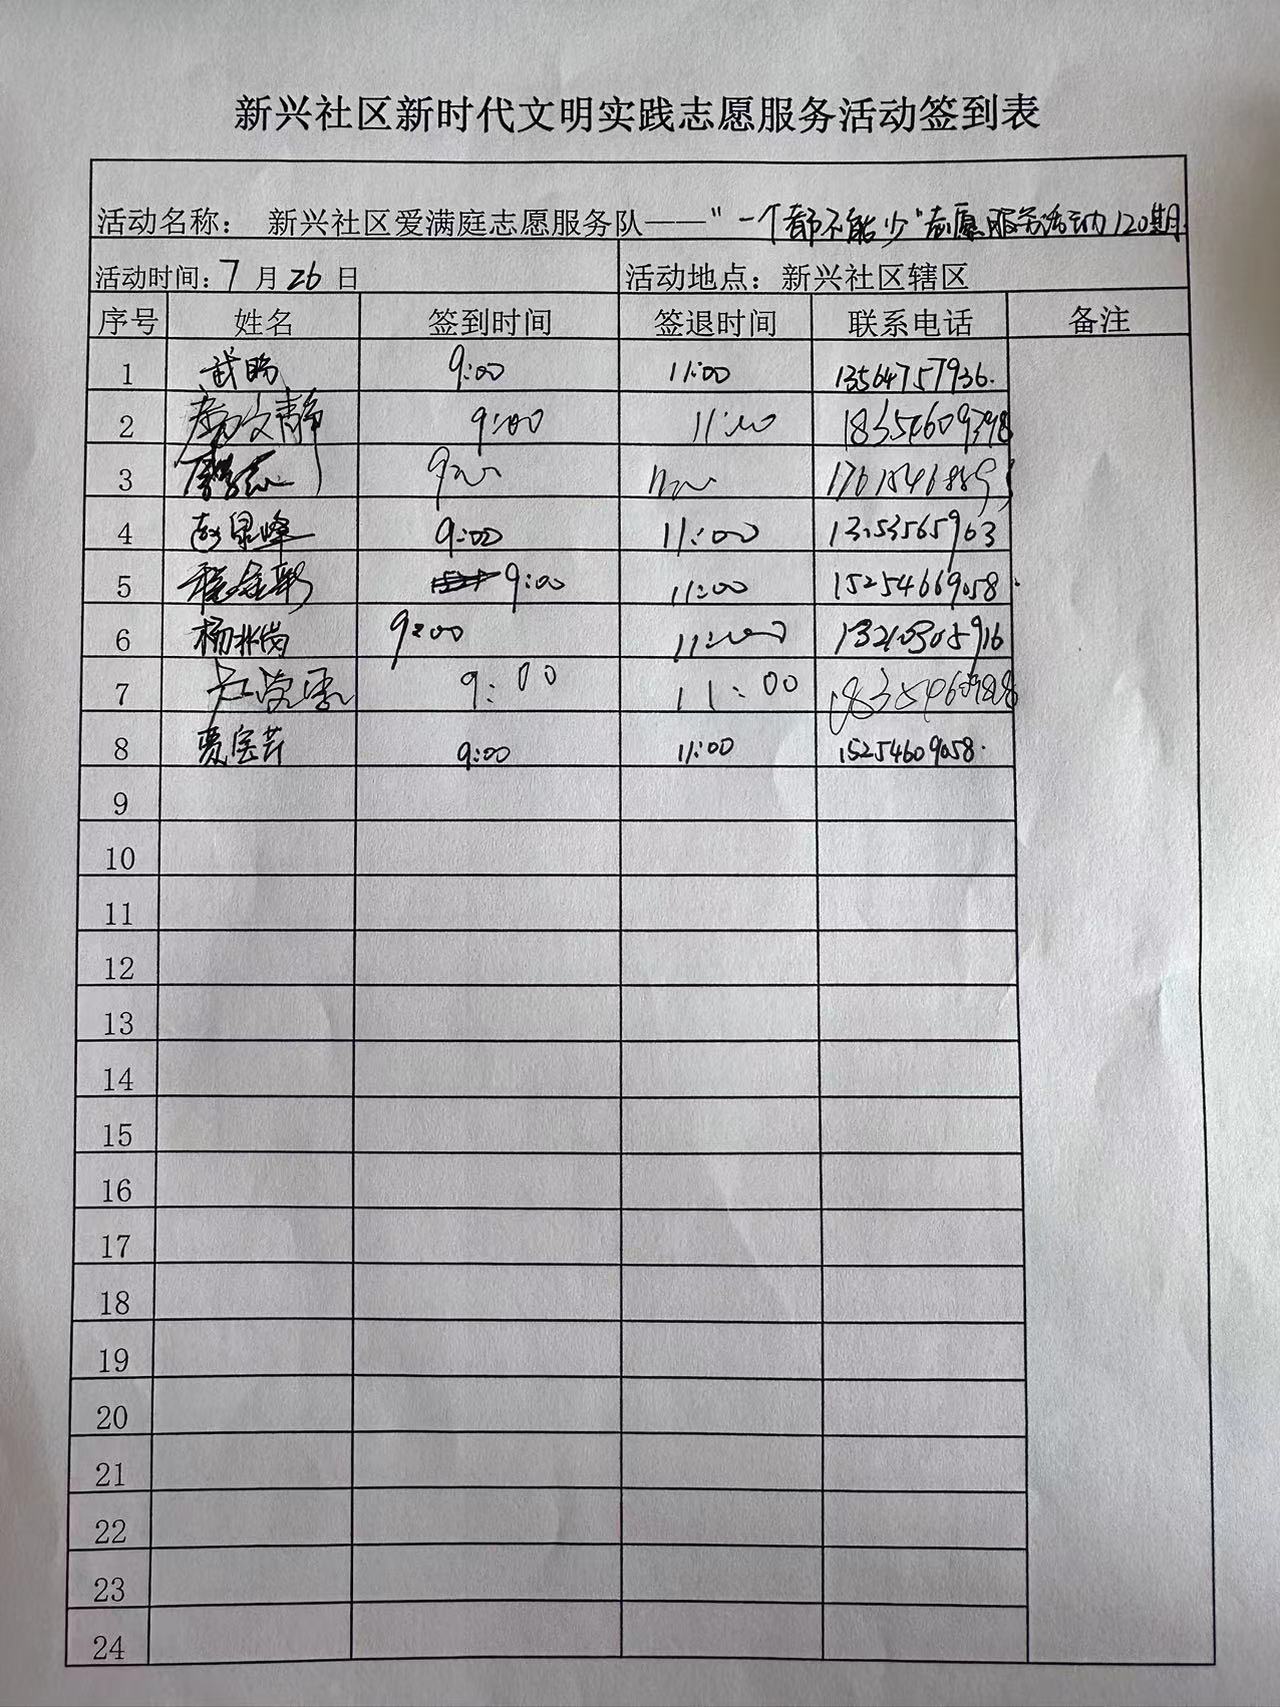 新兴社区新时代文明实践志愿服务活动签到表
活动名称： 新兴社区爱满庭志愿服务队——"一个都不能少"志愿服务活动120期
活动时间：7月26日 活动地点：新兴社区辖区
序号 姓名 签到时间 签退时间 联系电话 备注
1 武盼 9:00 11:00 13564757936.
2 文静 9:00 11:00
3 9:00 11:00
4 赵显峰 9:00 11:00
5 9:00 11:00 15254669058
6 杨兆岗 9:00 11:00 13210305916
7 9:00 11:00
8 贾宝芹 9:00 11:00 15254609058.
9
10
11
12
13
14
15
16
17
18
19
20
21
22
23
24